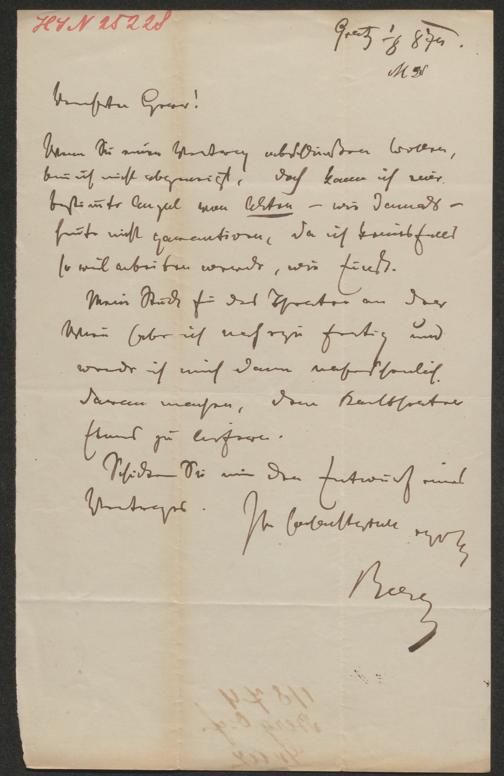 HIN 25228
Graz 1/8 874.
Verehrter Herr!
Wenn Sie einen Vertrag abschließen wollen,
bin ich nicht abgeneigt, doch kann ich eine
bestimmte Anzahl von Akten – wie damals –
heute nicht garantieren, da ich keinesfalls
so viel arbeiten werde, wie einst.
Mein Stück für das Theater an der
Wien habe ich nahezu fertig und
werde ich mich dann
daran machen, dem
etwas zu liefern.
Schicken Sie mir den Entwurf eines
Vertrages.
Ihr
Berg
1/8 74
Berg O. F.
Graz